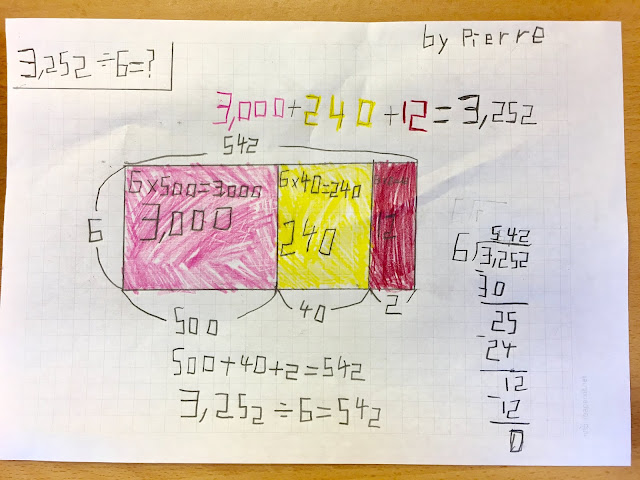 by Pierre
3,252 ÷ 6 = ?
3,000 + 240 + 12 = 3,252
542
6 × 500 = 3,000
6 × 40 = 240
3,000
240
12
6
500
40
2
500 + 40 + 2 = 542
3,252 ÷ 6 = 542
542
6 3,252
- 30
25
- 24
12
- 12
0